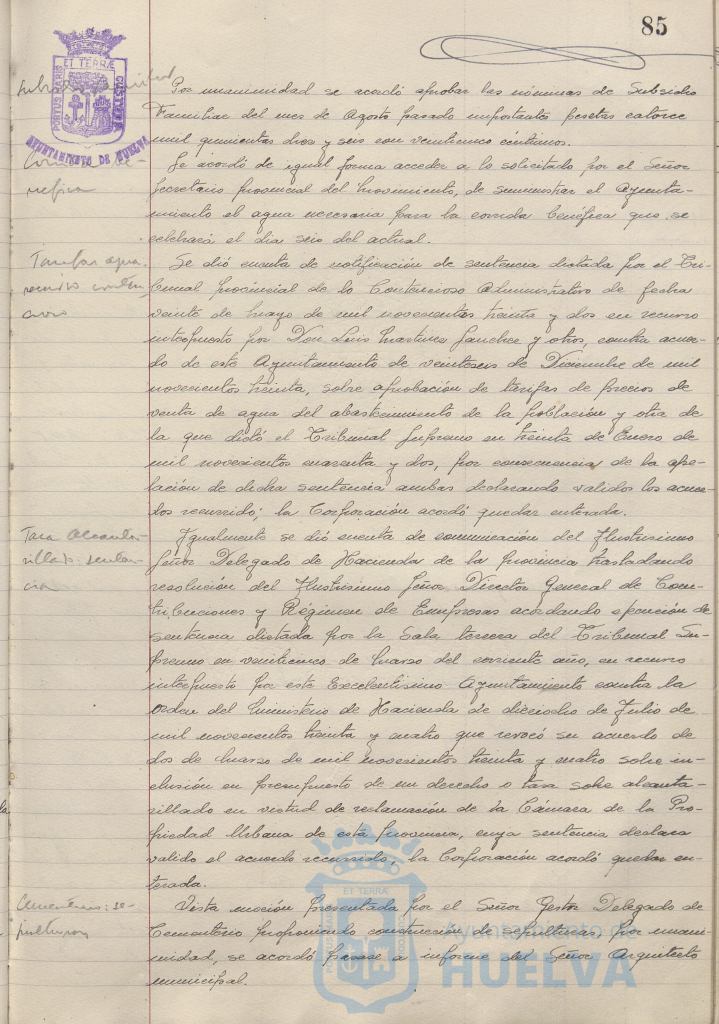 85
ET TERRÆ
PORTUS MARIS
CUSTODIA
AYUNTAMIENTO DE HUELVA
Por unanimidad se acordó aprobar las nóminas de Subsidio
Familiar del mes de Agosto pasado importantes pesetas catorce
mil quinientas dos y seis con veinticinco céntimos.
Corrida be-
néfica
Se acordó de igual forma acceder a lo solicitado por el Señor
Secretario Provincial del Movimiento, de suministrar el Ayunta-
miento el agua necesaria para la corrida benéfica que se
celebrará el día seis del actual.
Tarifas agua.
recurso conten
cioso
Se dió cuenta de notificación de sentencia dictada por el Tri-
bunal Provincial de lo Contencioso Administrativo de fecha
veinte de mayo de mil novecientos treinta y dos en recurso
interpuesto por Don Luis Martinez Sanchez y otros, contra acuer-
do de este Ayuntamiento de veintiseis de Diciembre de mil
novecientos treinta, sobre aprobación de tarifas de precios de
venta de agua del abastecimiento de la población y otra de
la que dictó el Tribunal Supremo en treinta de Enero de
mil novecientos cuarenta y dos, por consecuencia de la ape-
lación de dicha sentencia ambas declarando validos los acuer-
dos recurrido; la Corporación acordó quedar enterada.
Tasa Alcanta-
rillado: senten-
cia
Igualmente se dió cuenta de comunicación del Ilustrisimo
Señor Delegado de Hacienda de la provincia trasladando
resolución del Ilustrisimo Señor Director General de Con-
tribuciones y Régimen de Empresas acordando ejecución de
sentencia dictada por la Sala tercera del Tribunal Su-
premo en veinticinco de Marzo del corriente año, en recurso
interpuesto por este Excelentisimo Ayuntamiento contra la
Orden del Ministerio de Hacienda de dieciocho de Julio de
mil novecientos treinta y cuatro que revocó su acuerdo de
dos de Marzo de mil novecientos treinta y cuatro sobre in-
clusión en presupuesto de un derecho o tasa sobre alcanta-
rillado en virtud de reclamación de la Cámara de la Pro-
piedad Urbana de esta Provincia, cuya sentencia declara
valido el acuerdo recurrido; la Corporación acordó quedar en-
terada.
Cementerio: se-
pulturas
Vista moción presentada por el Señor Gestor Delegado de
Cementerio proponiendo construcción de sepulturas, por unani-
midad, se acordó pasase a informe del Señor Arquitecto
municipal.
ET TERRÆ
Ayuntamiento de
HUELVA